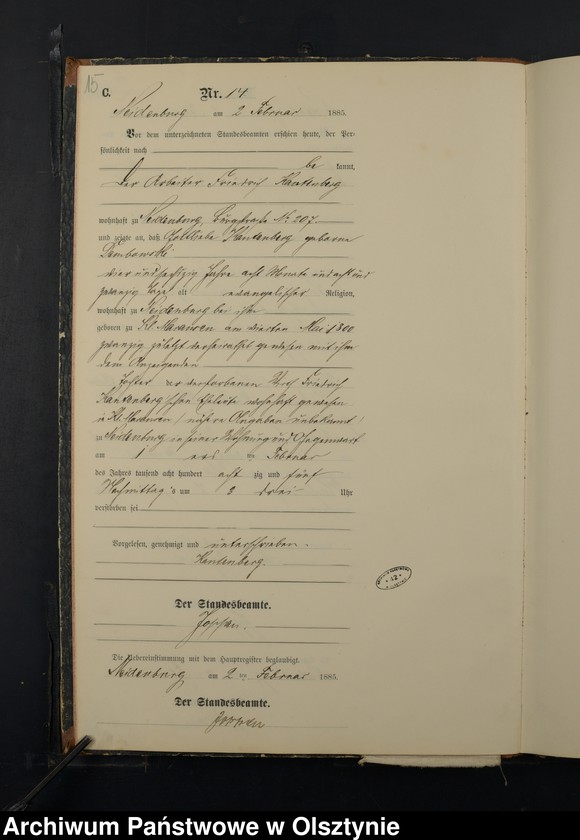 15
C.
Nr. 14
Neidenburg am 2 Februar 1885.
Vor dem unterzeichneten Standesbeamten erschien heute, der Per-
sönlichkeit nach
be kannt,
der Arbeiter Friedrich
wohnhaft zu Neidenburg, Burgstraße No 207
und zeigte an, daß Gottliebe geborene
Dembowski
vier und sechszig Jahre acht Monate und acht und
zwanzig Tage alt evangelischer Religion,
wohnhaft zu Neidenburg bei ihm
geboren zu Kl. am vierten Mai 1800
zwanzig zuletzt verheirathet gewesen mit ihm
dem Anzeigenden
Tochter der verstorbenen Friedrich
schen Eheleute wohnhaft gewesen
in Kl. (nähere Angaben unbekannt)
zu Neidenburg in seiner Wohnung und Gegenwart
am 1 ers ten Februar
des Jahres tausend acht hundert acht zig und fünf
Nachmittag s um 3 drei Uhr
verstorben sei
Vorgelesen, genehmigt und unterschrieben.
Der Standesbeamte.
Die Uebereinstimmung mit dem Hauptregister beglaubigt.
Neidenburg am 2 ten Februar 1885.
Der Standesbeamte.
12
Archiwum Państwowe w Olsztynie